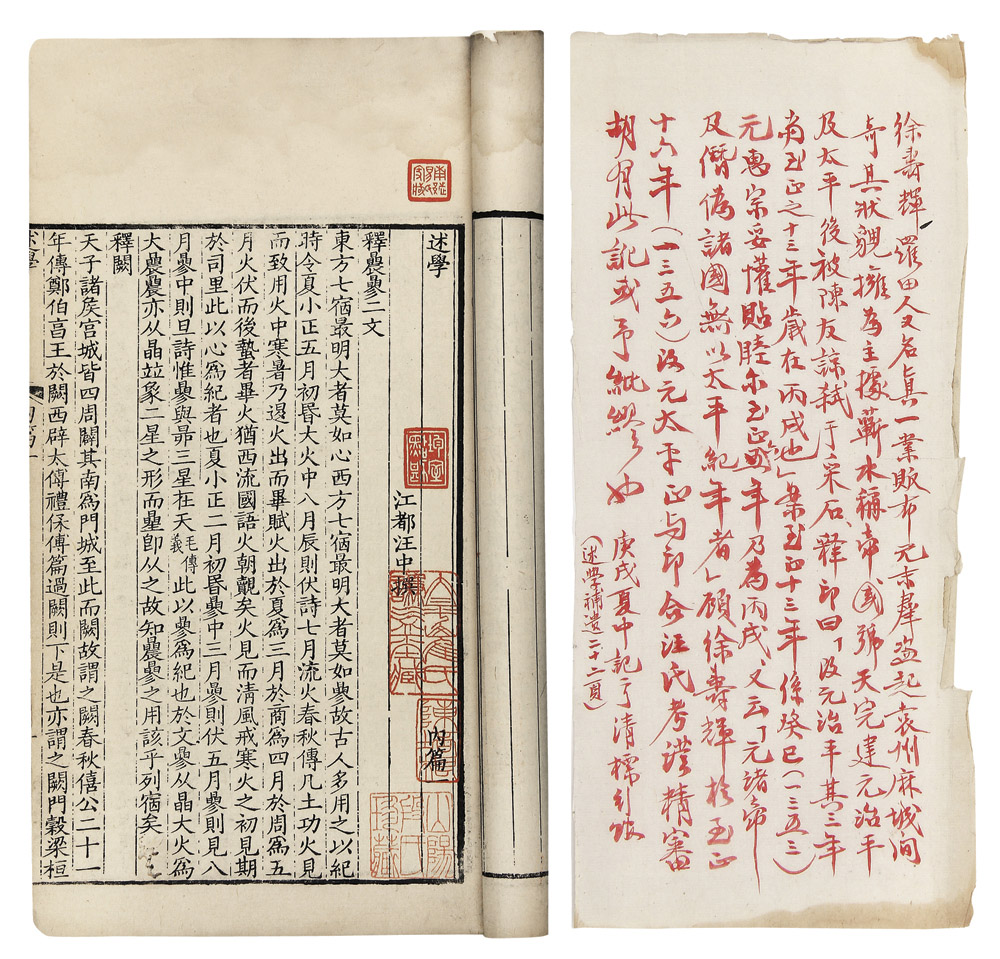 述學 內篇
江都汪中撰
釋曟曑二文
東方七宿最明大者莫如心西方七宿最明大者莫如曑故古人多用之以紀
時令夏小正五月初昬大火中八月辰則伏詩七月流火春秋傳凡土功火見
而致用火中寒暑乃退火出而畢賦火出於夏爲三月於商爲四月於周爲五
月火伏而後蟄者畢火猶西流國語火朝覿矣火見而清風戒寒火之初見期
於司里此以心爲紀者也夏小正二月初昬曑中三月曑則伏五月曑則見八
月曑中則旦詩惟曑與昴三星在天毛傳義此以曑爲紀也於文曑从晶大火爲
大曟曟亦从晶竝象二星之形而曐卽从之故知曟曑之用該乎列宿矣
釋闕
天子諸矦宮城皆四周闕其南爲門城至此而闕故謂之闕春秋僖公二十一
年傳鄭伯亯王於闕西辟太傅禮保傅篇過闕則下是也亦謂之闕門穀梁桓
徐壽輝羅田人又名真一業販布元末羣盜起袁州麻城間
奇其狀貌擁為主據蘄水稱帝國號天完建元治平
及太平後被陳友諒弒于采石釋印曰「及元治平其三年
為至正之十三年歲在丙戌也」案至正十三年係癸巳(一三五三)
元惠宗妥懽貼睦尔至正六年乃為丙戌又云「元諸帝
及僭偽諸國無以太平紀年者」顧徐壽輝於至正
十六年(一三五六)改元太平正與印合汪氏考證精審
胡有此記或予紕繆也
庚戌夏中記于清標行館
(述學補遺一、二頁)